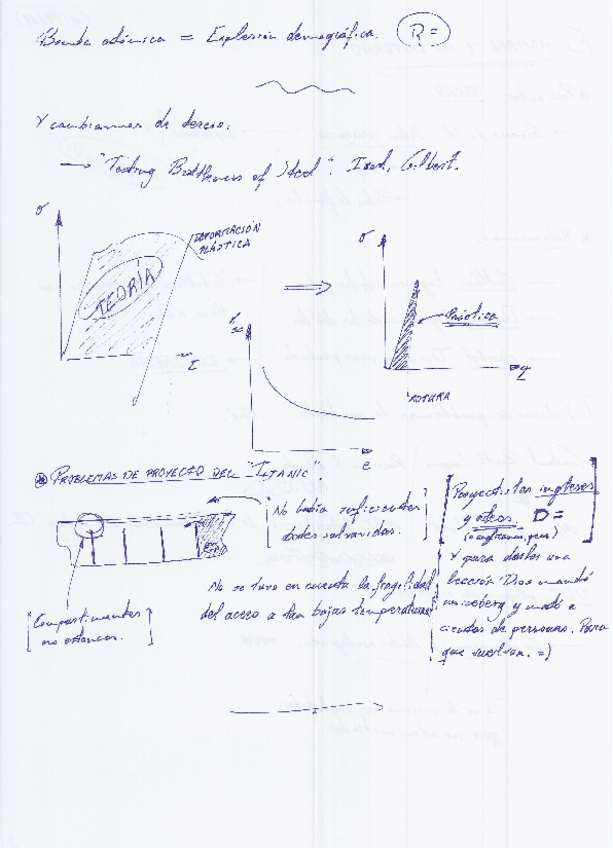 Bomba atómica = Explosión demográfica. R=
Y cambiamos de tercio.
→ "Testing Brittleness of Steel". Izod, Gilbert.
σ
DEFORMACIÓN
PLÁSTICA
TEORÍA
σ
Práctica
ROTURA
e
* PROBLEMAS DE PROYECTO DEL "TITANIC"
No había suficientes
botes salvavidas.
Compartimentos
no estancos.
No se tuvo en cuenta la fragilidad
del acero a tan bajas temperaturas
Proyectistas ingleses
y ateos. D=
Y para darles una
lección Dios mandó
un iceberg y mató a
cientos de personas. Para
que vuelvan. =)